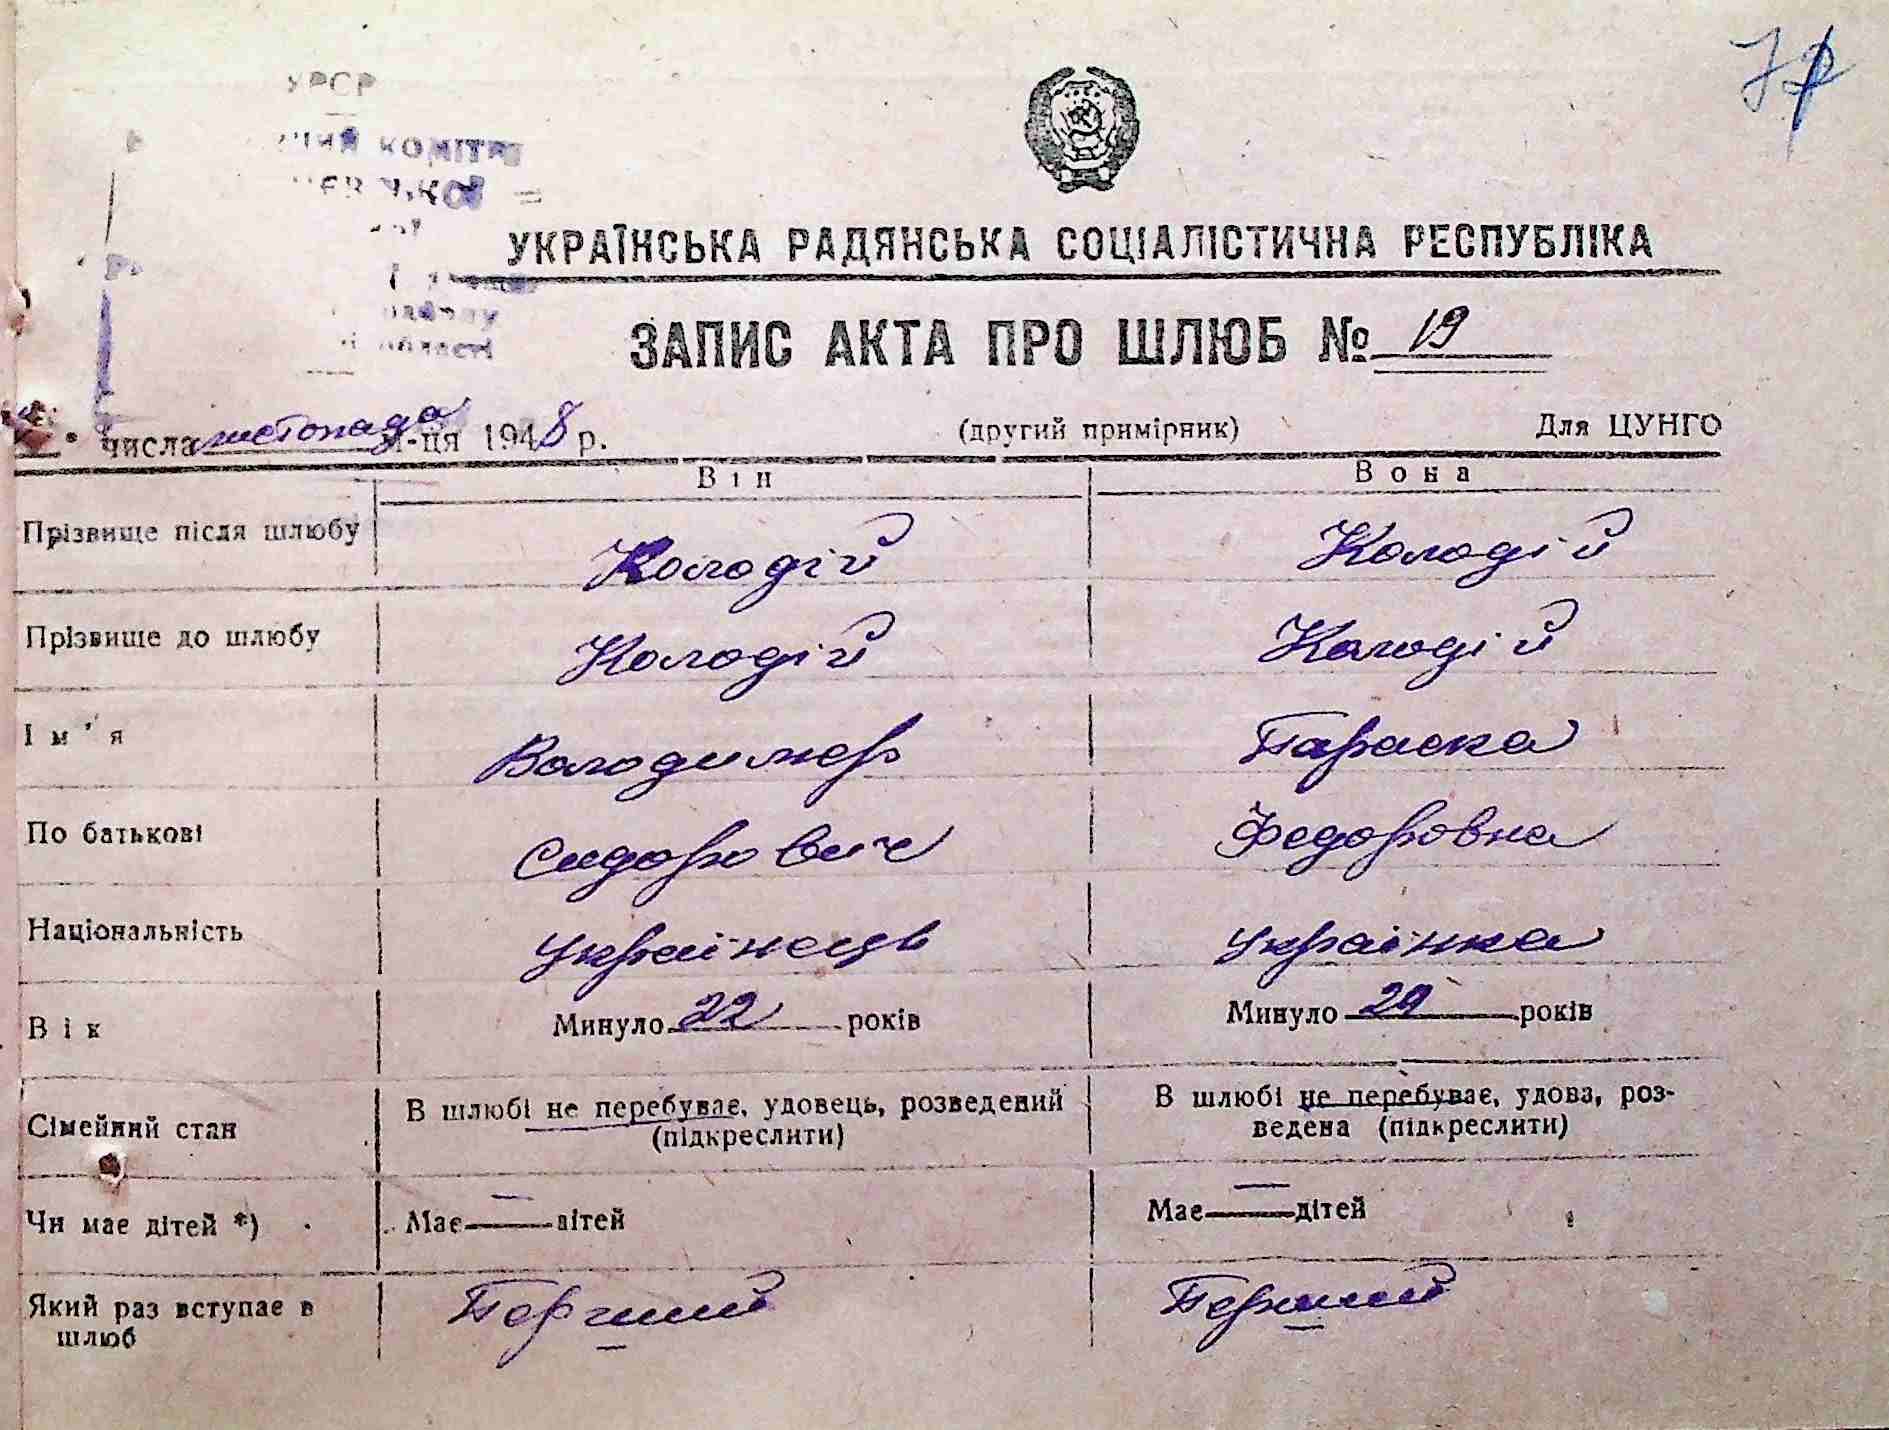 УРСР
КОМІТЕ
області
УКРАЇНСЬКА РАДЯНСЬКА СОЦІАЛІСТИЧНА РЕСПУБЛІКА
ЗАПИС АКТА ПРО ШЛЮБ № 19
числа листопада м-ця 1948 р. (другий примірник) Для ЦУНГО
Він Вона
Прізвище після шлюбу Колодій Колодій
Прізвище до шлюбу Колодій Колодій
Ім'я Володимер Параска
По батькові Сидорович Федоровна
Національність українець українка
Вік Минуло 22 років Минуло 29 років
Сімейний стан В шлюбі не перебуває, удовець, розведений (підкреслити) В шлюбі не перебуває, удова, роз-
ведена (підкреслити)
Чи має дітей *) Має — дітей Має — дітей
Який раз вступає в Перший Перший
шлюб